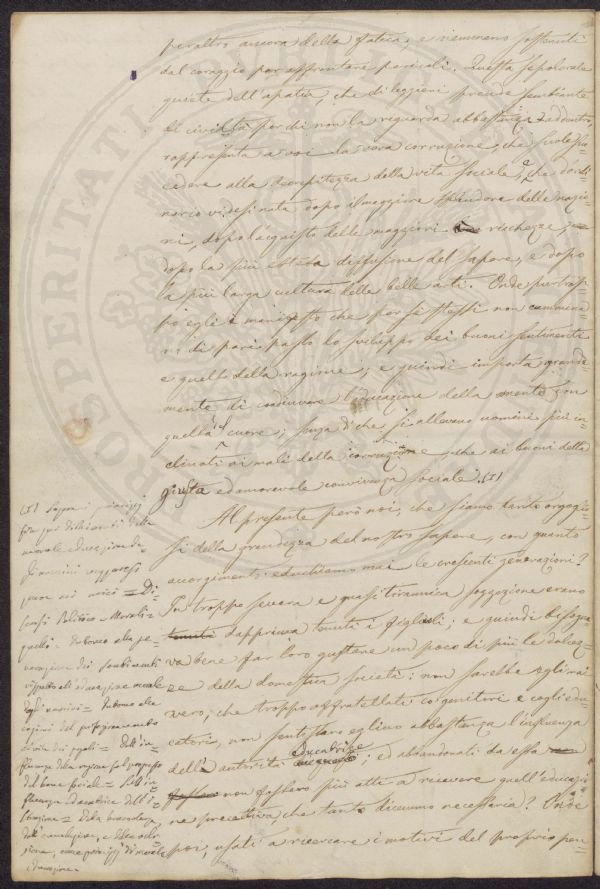 peraltro ancora della fatica, e nemmeno sostenuti
dal coraggio per affrontare pericoli. Questa sepolcrale
quiete dell'apatia, che di leggieri prende sembiante
di civiltà per chi non la riguarda abbastanza addentro,
rappresenta a voi la vera corruzione, che suole suc-
cedere alla decrepitezza della vita sociale, e che d'ordi-
nario vedesi nata dopo il maggiore splendore delle nazio-
ni, dopo l'acquisto delle maggiori ricchezze,
dopo la più estesa diffusione del sapere, e dopo
la più larga cultura delle belle arti. Onde pur trop-
po egli è manifesto che per sè stessi non cammina-
no di pari passo lo sviluppo dei buoni sentimenti
e quello della ragione; e quindi importa grande-
mente di condurre l'educazione della mente con
quella del cuore; senza di che si allevano uomini più in-
clinati ai mali della corruzione, che ai buoni della
giusta ed amorevole convivenza sociale. (1)
Al presente però noi, che siamo tanto orgoglio-
si della grandezza del nostro sapere, con quanto
accorgimento educhiamo mai le crescenti generazioni?
In troppo severa e quasi tirannica soggezione erano
dapprima tenuti i figliuoli; e quindi bisogna-
va bene far loro gustare un poco di più le dolcez-
ze della domestica società: non sarebbe egli mai
vero, che troppo affratellati coi genitori e cogli edu-
catori, non sentissero eglino abbastanza l'influenza
dell'autorità educatrice; e abbandonati da essa
non fossero più atti a ricevere quell'educazio-
ne precettiva, che tanto dicemmo necessaria? Onde
poi, usati a ricercare i motivi del proprio pen-
(1) Sopra i principj
fin qui dichiarati della
morale educazione de-
gli uomini
miei = Di-
scorsi Politico-Morali =
quelli: Intorno alla ge-
nerazione dei sentimenti
rispetto all'educazione morale
degli uomini = Intorno alle
cagioni del perfezionamento
civile dei popoli = Dell'in-
fluenza della ragione sul progresso
del bene sociale = Dell'in-
fluenza educatrice dell'i-
struzione = Della
dell' e della
sione, come principj di morale
educazione.